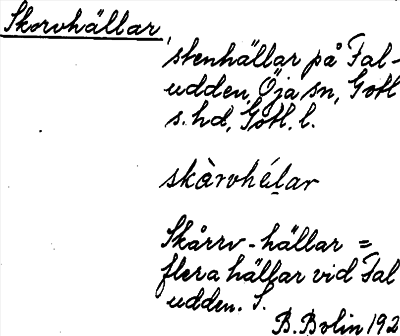 Skorvhällar,
stenhällar på Fal-
udden, Öja sn, Gotl
s. hd, Gotl. l.
skàrvhélar
Skårrv-hällar =
flera hällar vid Fal
udden. S.
B. Bolin 192